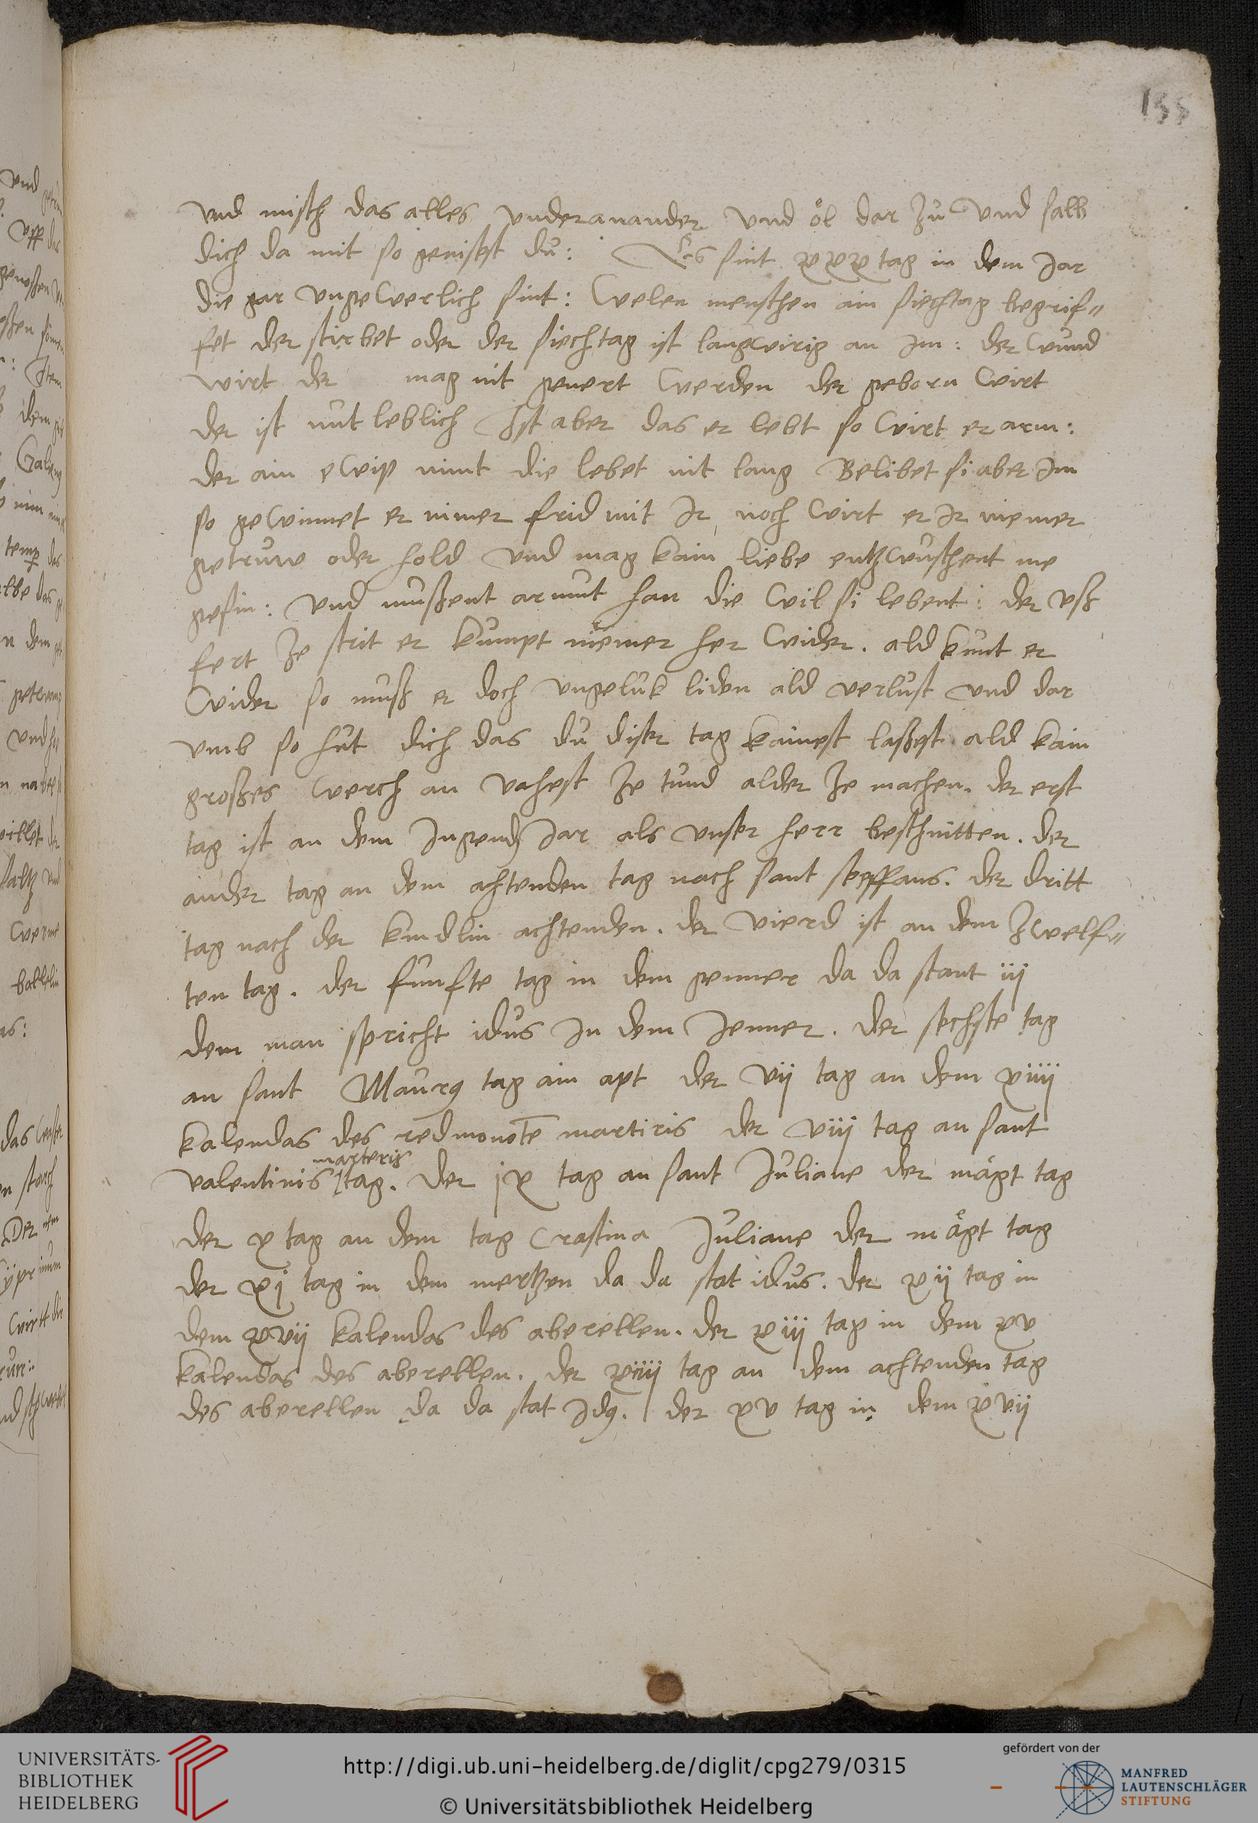 155
vnd misch das alles vnderananader vnd öl dar zu vnd salb
dich da mit so genist du: Es sint xxx tag in dem Jar
die gar vngewerlich sint: welen menschen ain siechtag begrif„
fet der stirbet oder der siechtag ist langwirig an im: der wund
wirt der mag nit genert werden der geborn wirt
der ist nut leblich Ist aber das er lebt so wirt er arm:
der ain ewip nimt die lebet nit lang Belibet si aber im
so gewinnet er nimer frid mit Ir noch wirt er Ir niemer
getruw oder hold vnd mag kain liebe entzwuschent me
gesin: vnd mussent armut han die wil si lebent: der vss
fert ze strit er kumpt niemer her wider. ald kunt er
wider so muss er doch vngeluk liden ald verlust vnd dar
vmb so hut dich das du diser tag kainest lassest ald kain
grosses werch an vahest ze tund alder ze machen. der erst
tag ist an dem Ingend Jar als vnser herr beschnitten. der
ander tag an dem achtenden tag nach sant steffans. der dritt
tag nach der kindlin achtenden. der vierd ist an dem zwelf„
ten tag. der funfte tag in dem genner da da stant iij
dem man spricht idus In dem Jenner. der sechste tag
an sant Maurꝯ tag ain apt der vij tag an dem xiiij
kalendas des redmonote martiris der viij tag an sant
marteris
valentinis tag. der ix tag an sant Juliane der mägt tag
der x tag an dem tag Crastina Juliane der mägt tag
der xj tag in dem mertzen da da stat idus. der xij tag in
dem xvij kalendas des aberellen. der xiij tag in dem xv
kalendas des aberellen. der xiiij tag an dem achtenden tag
des aberellen da da stat Idꝯ. der xv tag in dem xvij
UNIVERSITÄTS-
BIBLIOTHEK
HEIDELBERG
http://digi.ub.uni-heidelberg.de/diglit/cpg279/0315
© Universitätsbibliothek Heidelberg
gefördert von der
MANFRED
LAUTENSCHLÄGER
STIFTUNG